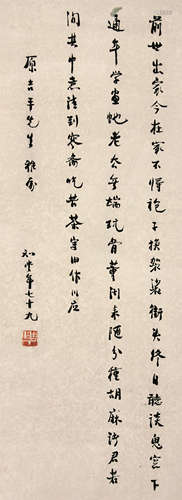 前世出家今在家不將袍子換袈裟街頭終日聽談鬼窗下
通年學畫蛇老去無端玩骨董閒來隨分種胡麻君若
問其中意且到寒齋吃苦茶舊作以應
原吉平先生雅屬
知堂年七十九